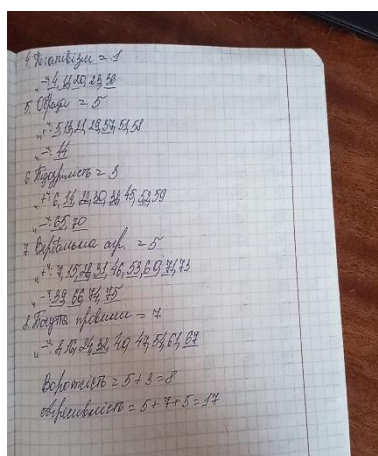 4. Негативізм = 1
„+": 4, 12, 20, 23, 36
5. Образа = 5
„+": 5, 13, 21, 29, 37, 51, 58
„-": 44
6. Підозрілість = 3
„+": 6, 14, 22, 30, 38, 45, 52, 59
„-": 65, 70
7. Вербальна агр. = 5
„+": 7, 15, 28, 31, 46, 53, 60, 71, 73
„-": 39, 66, 74, 75
8. Почуття провини = 7
„+": 8, 16, 24, 32, 40, 47, 54, 61, 67
Ворожість = 5 + 3 = 8
Агресивність = 5 + 7 + 5 = 17